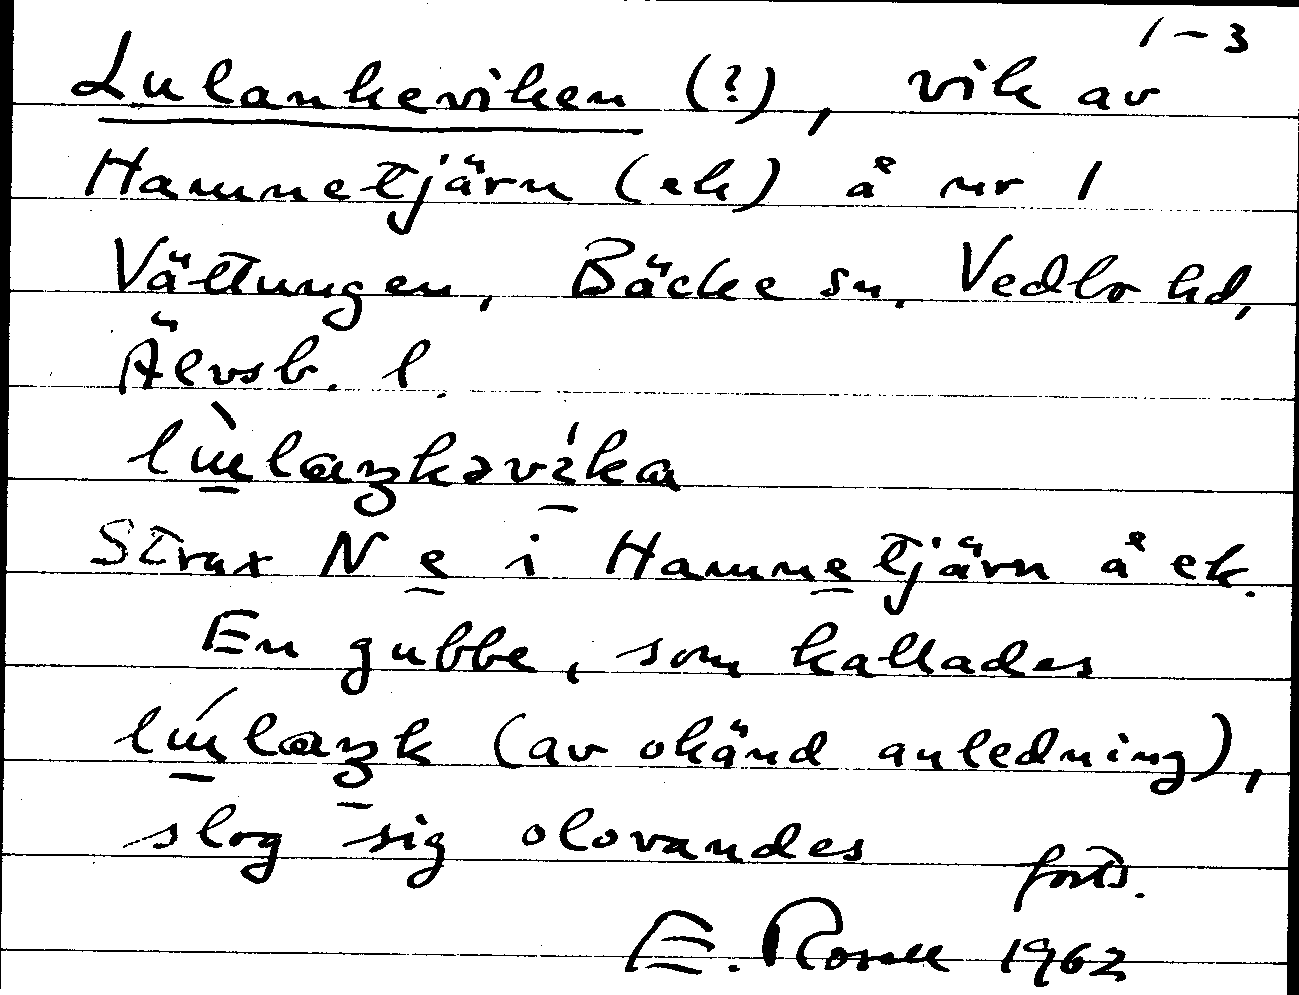 1-3
Lulankeviken (?), vik av
Hammetjärn (ek) å nr 1
Vättungen, Bäcke sn. Vedbo hd,
Älvsb. l.
Strax N e i Hammetjärn å ek.
En gubbe, som kallades
(av okänd anledning),
slog sig olovandes
forts.
E. Rosell 1962